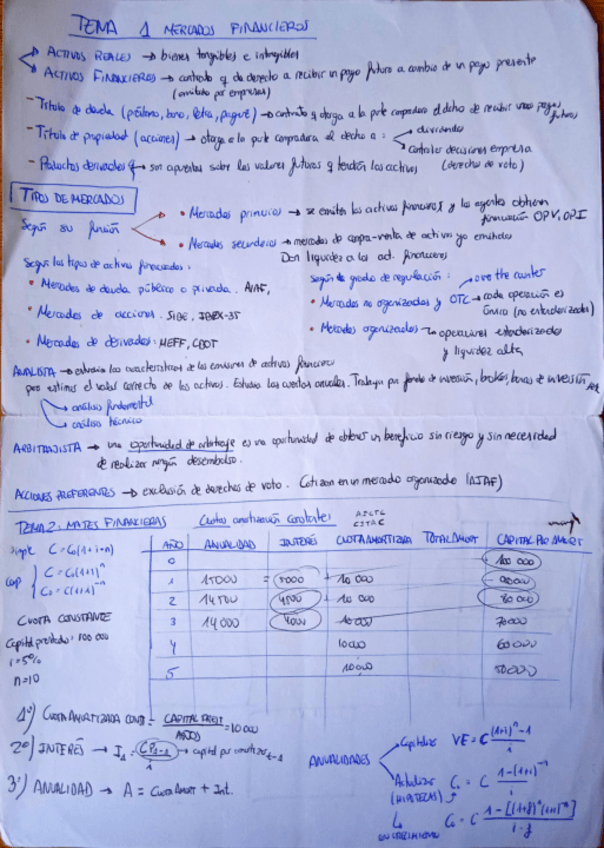 TEMA 1 MERCADOS FINANCIEROS
ACTIVOS REALES → bienes tangibles e intangibles
ACTIVOS FINANCIEROS → contrato q da derecho a recibir un pago futuro a cambio de un pago presente
(emitido por empresas)
- Título de deuda (préstamo, bono, letra, pagaré) → contrato q otorga a la pte compradora el dcho de recibir unos pagos futuros
- Título de propiedad (acciones) → otorga a la pte compradora el decho a :
dividendos
controlar decisiones empresa
(derecho de voto)
- Productos derivados → son apuestas sobre los valores futuros q tendrán los activos
TIPOS DE MERCADOS
Según su función
• Mercados primarios → se emiten los activos financieros y los agentes obtienen
financiación OPV, OPI
• Mercados secundarios → mercados de compra-venta de activos ya emitidos
Dan liquidez a los act. financieros
Según los tipos de activos financiados :
• Mercados de deuda pública o privada. AIAF,
• Mercados de acciones. SIBE, IBEX-35
• Mercados de derivados: MEFF, CBOT
Según grado de regulación :
over the counter
• Mercados no organizados y OTC → cada operación es
única (no estandarizadas)
• Mercados organizados → operaciones estandarizadas
y liquidez alta
ANALISTA → estudia las características de las emisiones de activos financieros
para estimar el valor correcto de los activos. Estudia las cuentas anuales. Trabaja para fondos de inversión, brokers, bancos de inversión
análisis fundamental
análisis técnico
ARBITRAJISTA → una oportunidad de arbitraje es una oportunidad de obtener un beneficio sin riesgo y sin necesidad
de realizar ningún desembolso.
ACCIONES PREFERENTES → exclusión de derechos de voto. Cotizan en un mercado organizado (AIAF)
TEMA 2: MATES FINANCIERAS
Cuotas amortización constantes
Simple C = C₀(1+i·n)
Comp C = C₀(1+i)ⁿ
C₀ = C(1+i)⁻ⁿ
CUOTA CONSTANTE
Capital prestado: 100 000
i = 5%
n = 10
AÑO ANUALIDAD INTERÉS CUOTA AMORTIZADA TOTAL AMORT CAPITAL PDTE AMORT
0 100 000
1 15000 = 5000 + 10 000 90000
2 14500 4500 + 10 000 80 000
3 14 000 4000 10 000 70000
4 10000 60000
5 10000 50000
1º) CUOTA AMORTIZADA CONST = CAPITAL PREST / AÑOS = 10 000
2º) INTERÉS → capital por amortizar t-1
3º) ANUALIDAD → A = Cuota Amort + Int.
ANUALIDADES
Capitalizar VF = C (1+i)ⁿ - 1 / i
Actualizar C₀ = C 1-(1+i)⁻ⁿ / i
(HIPOTECAS)
CON CRECIMIENTO C₀ = C 1-[(1+g)ⁿ(1+i)⁻ⁿ] / i-g